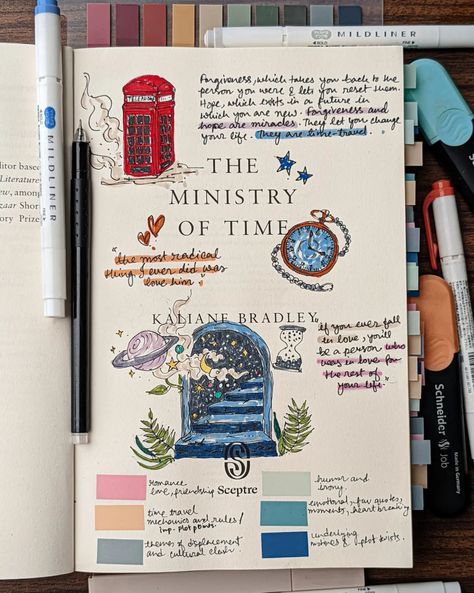 MILDLINER
MILDLINER
Forgiveness, which takes you back to the
person you were & lets you reset them.
Hope, which exists in a future in
which you are new. Forgiveness and
hope are miracles. They let you change
your life. They are time-travel.
itor based
Literature
ew, among
zaar Short
ory Prize
THE
MINISTRY
OF TIME
"the most radical
thing I ever did was
love him"
KALIANE BRADLEY
"if you ever fall
in love, you'll
be a person who
was in love for
the rest of
your life."
Schneider
Job
Made in Germany
Sceptre
romance
love, friendship
time travel
mechanics and rules/
imp. plot points.
themes of displacement
and cultural clash
humor and
irony.
emotional, fav quotes,
moments, heartbreaking
underlying
motives & plot twists.
MILDLINER